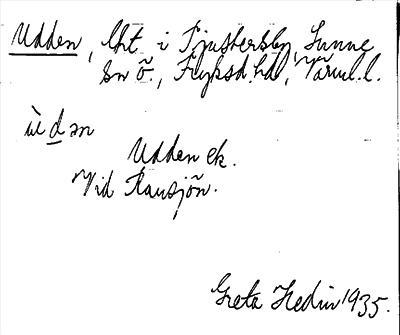 Udden, lht. i Tjustersby, Sunne
sn ö., Fryksd. hd, Värml. l.
ùdən
Udden ek.
Vid Ransjön.
Greta Hedin 1935.